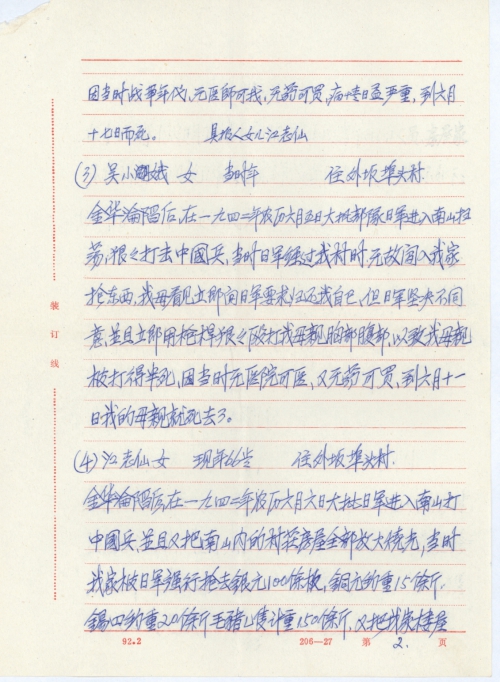 因当时战争年代,无医师可找,无药可买,病情日益严重,到六月
十七日而死。 具报人女儿江志仙
(3) 吴小娥 女 当时年 住外坂埠头村.
金华沦陷后,在一九四二年农历六月五日大批部队日军进入南山扫
荡,狠々打击中國兵,当时日军经过我村时,无故闯入我家
抢东西,我母看见立即向日军要求归还我自己,但日军坚决不同
意,並且立即用枪桿狠々殴打我母親胸部腹部,以致我母親
被打得半死,因当时无医院可医,又无药可买,到六月十一
日我的母親就死去了。
(4) 江志仙 女 现年66岁 住外坂埠头村.
金华沦陷后,在一九四二年农历六月六日大批日军进入南山打
中國兵,並且又把南山内的村莊房屋全部放火烧光,当时
我家被日军强行抢去銀元100馀块,銅元約重15馀斤,
錫 約重20馀斤毛豬 隻计重150馀斤,又把我家楼屋
装订线
92.2 206—27 第 2. 页